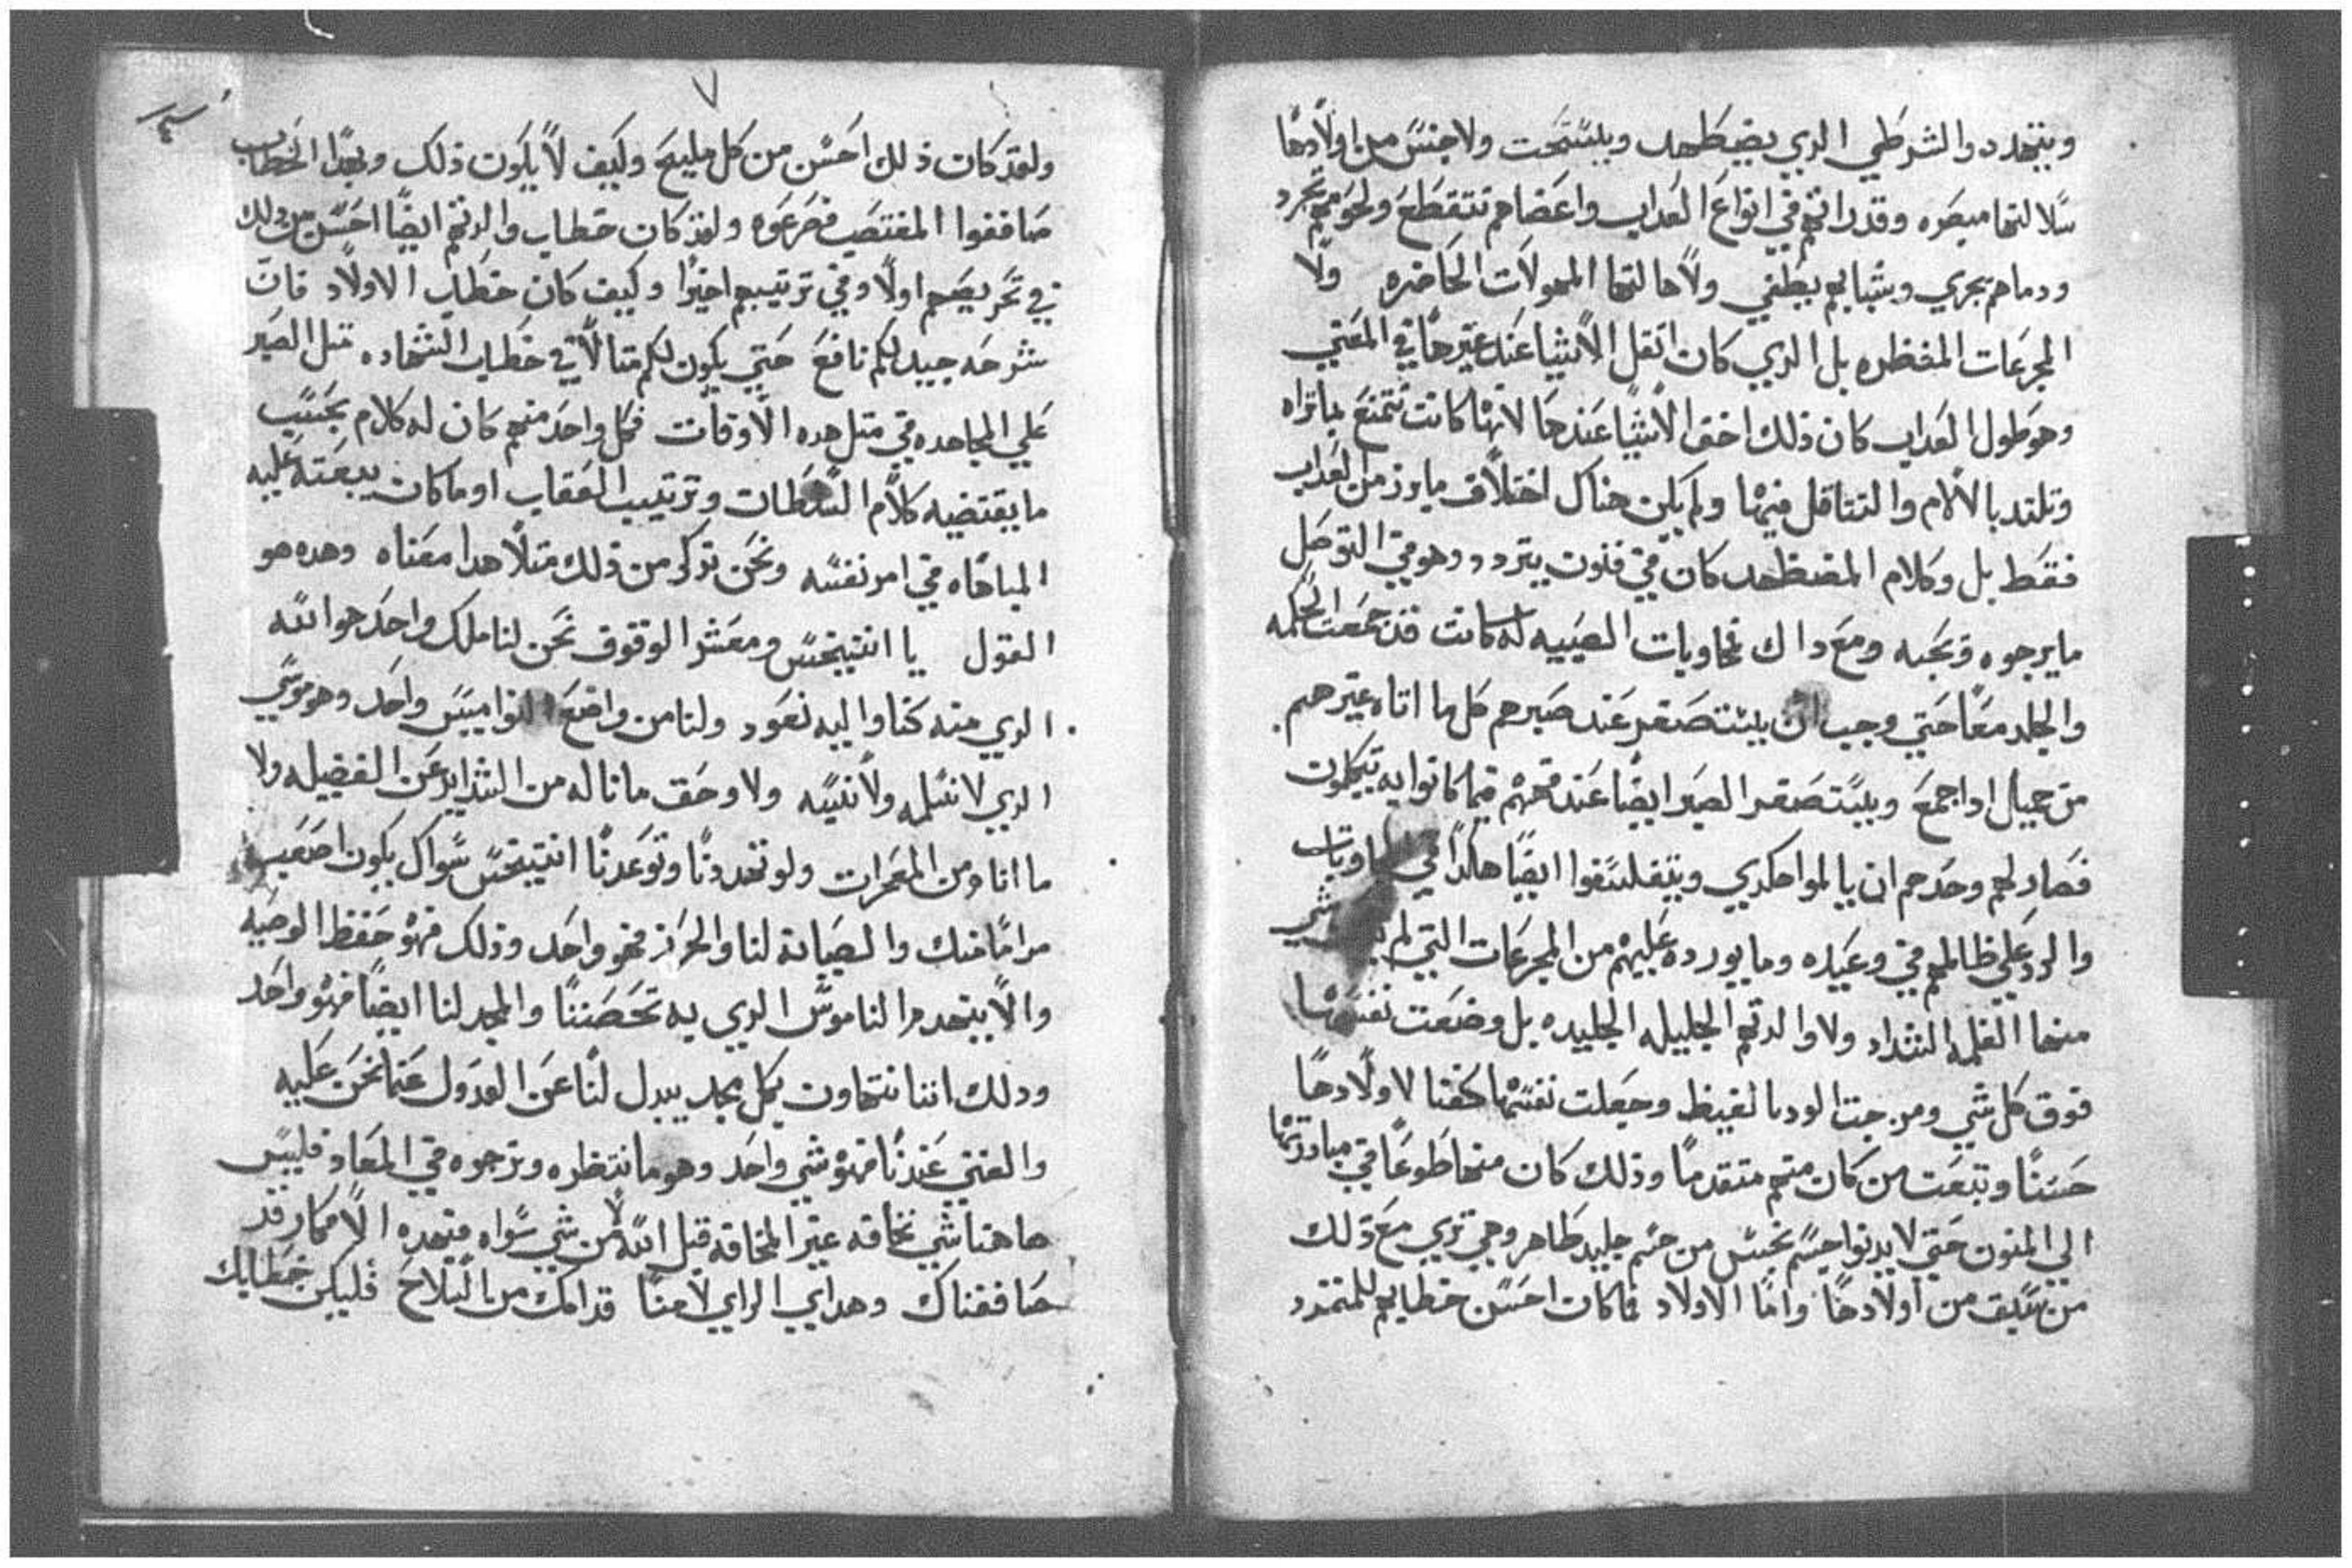 ويتهدد والشرطي الدي يضطهد ويستحت ولا جنس من اولادها
سلالتها ميصره وقد راتهم في انواع العداب واعضاهم تتقطع ولحومهم تجرد
ودماهم تجري وشبابهم يطفي ولا هالتها المهولات الحاضره ولا
المجرعات المنتظره بل الدي كان اتقل الاشيا عند غيرها في المعني
وهو طول العداب كان ذلك اخف الاشيا عندها لانها كانت تتمتع بما تراه
وتلتد بالالام والتتاقل فيها ولم يكن هناك اختلاف ما برز من العداب
فقط بل وكلام المضطهد كان في فنون يتردد وهو في التوصل
ما يرجوه وتحبه ومع داك فجاوبات الصبيه له كانت قد جمعت الحكمه
والجلد معا حتي وجب ان يستصغر عند صبرهم كل ما اتاه غيرهم
من جميل اد اجمع ويستصغر الصبر ايضا عند فهمهم فيما كانوا به يتكلمون
فصار لهم وحدهم ان يالموا هكدي ويتفلسفوا ايضا هكدا في
والرد علي ظالمهم في وعيده وما يورده عليهم من المجرعات التي لم
منها الغلمه الشداد ولا والدتهم الجليله الجليده بل وضعت نفسها
فوق كل شي ومرجت الود بالغيظ وجعلت نفسها كفنا لاولادها
حسنا وتبعت من كان منهم متقدما وذلك كان منها طوعا في مبادرتها
الي المنون حتي لا يدنوا جسم نجس من جسم جليد طاهر وهي تري مع ذلك
من سبق من اولادها واما الاولاد فما كان احسن خطابهم للمتمرد
٧
ولقد كان ذلك احسن من كل مليح وكيف لا يكون ذلك وبهدا الخطاب
صاففوا المغتصب فصرعوه ولقد كان خطاب والدتهم ايضا احسن من ذلك
في تحريضهم اولا وفي ترتيبهم اخيرا وكيف كان خطاب الاولاد فان
شرحه جيد لكم نافع حتي يكون لكم متالا في خطاب الشهاده قبل الصبر
علي المجاهده في متل هده الاوقات فكل واحد منهم كان له كلام بحسب
ما يقتضيه كلام السلطان وترتيب العقاب او ما كان يبعته عليه
المباهاه في امر نفسه ونحن ندكر من ذلك متلا هدا معناه وهده هو
القول يا انتيخس ومعشر الوقوف نحن لنا ملك واحد هو الله
الدي منه كنا واليه نعود ولنا من واضع النواميس واحد وهو موسي
الدي لا نسلمه ولا ننسه ولا وحق ما ناله من الشدايد عن الفضيله ولا
ما اتا ومن المعجزات ولو تهددنا وتوعدنا انتيخس سواك يكون اصعب
مراما منك والصيانه لنا والحرز فهو واحد وذلك فهو حفظ الوصيه
والا ينهدم الناموس الدي به تحصننا والمجد لنا ايضا فهو واحد
ودلك اننا نتهاون بكل مجد يبدل لنا عن العدول عما نحن عليه
والغني عندنا فهو شي واحد وهو ما ننتظره ونرجوه في المعاد فليس
هاهنا شي نخافه غير المخافه قبل الله من شي سواه فبهده الافكار قد
صاففناك وهدا هي الراي لا منا قدامك من السلاح فليكن خطابك